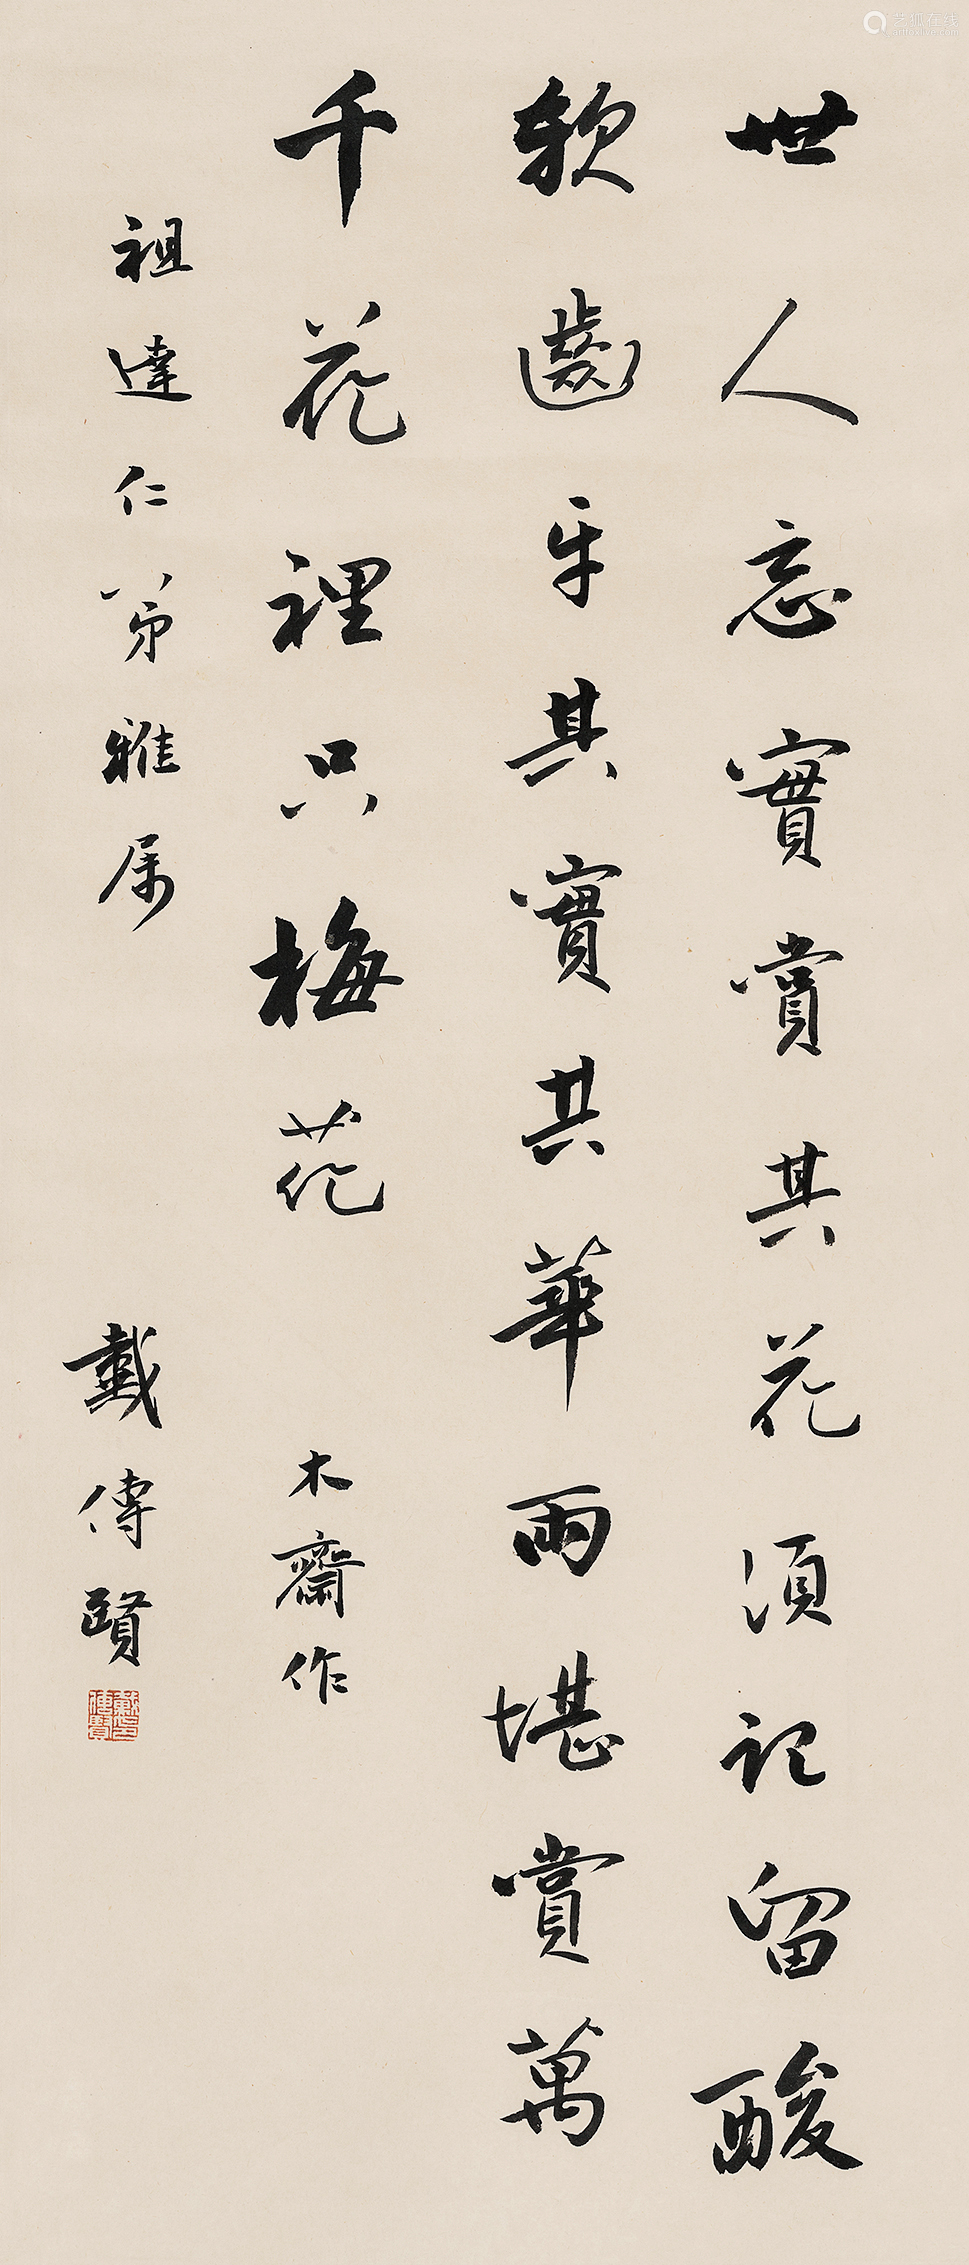 世人忘實賞其花須記留酸
軟齒牙其實其華兩堪賞萬
千花裡只梅花 木齋作
祖達仁弟雅属
戴傳賢
戴傳賢印
艺狐在线
artfoxlive.com